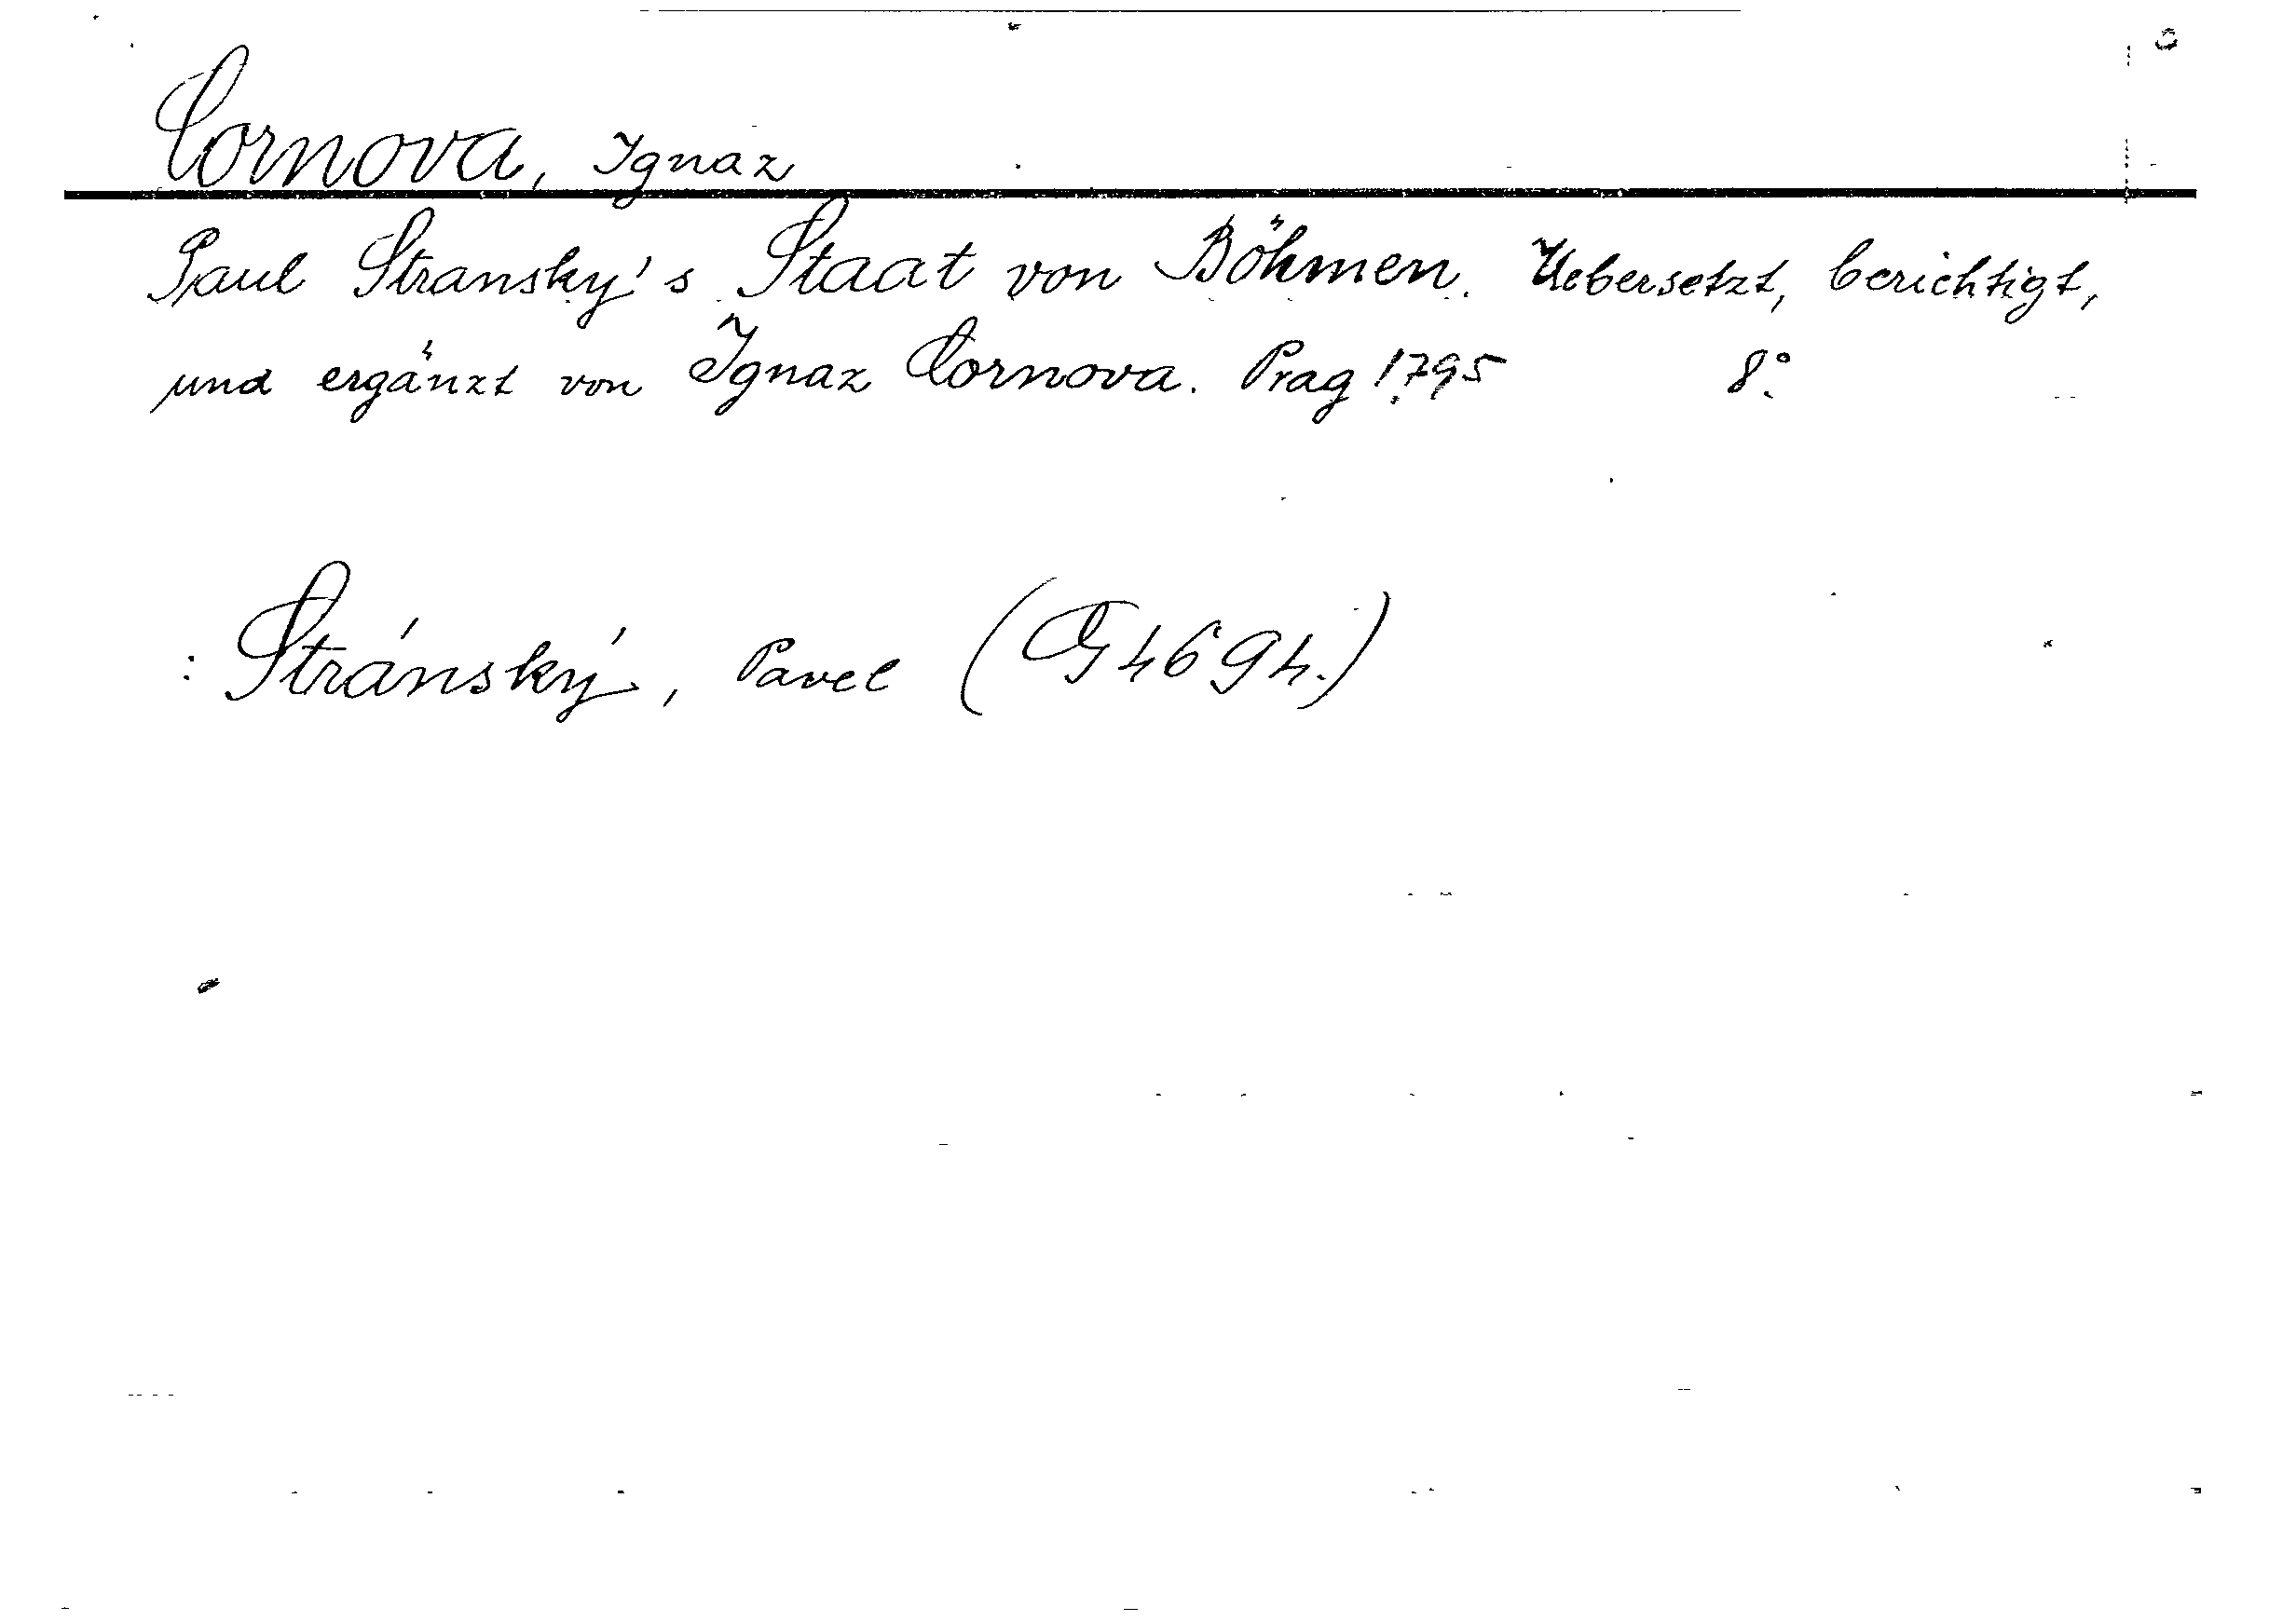 Cornova, Ignaz
Paul Stransky's Staat von Böhmen. Uebersetzt, berichtigt,
und ergänzt von Ignaz Cornova. Prag 1795 8°.
: Stránský, Pavel (G 4694.)